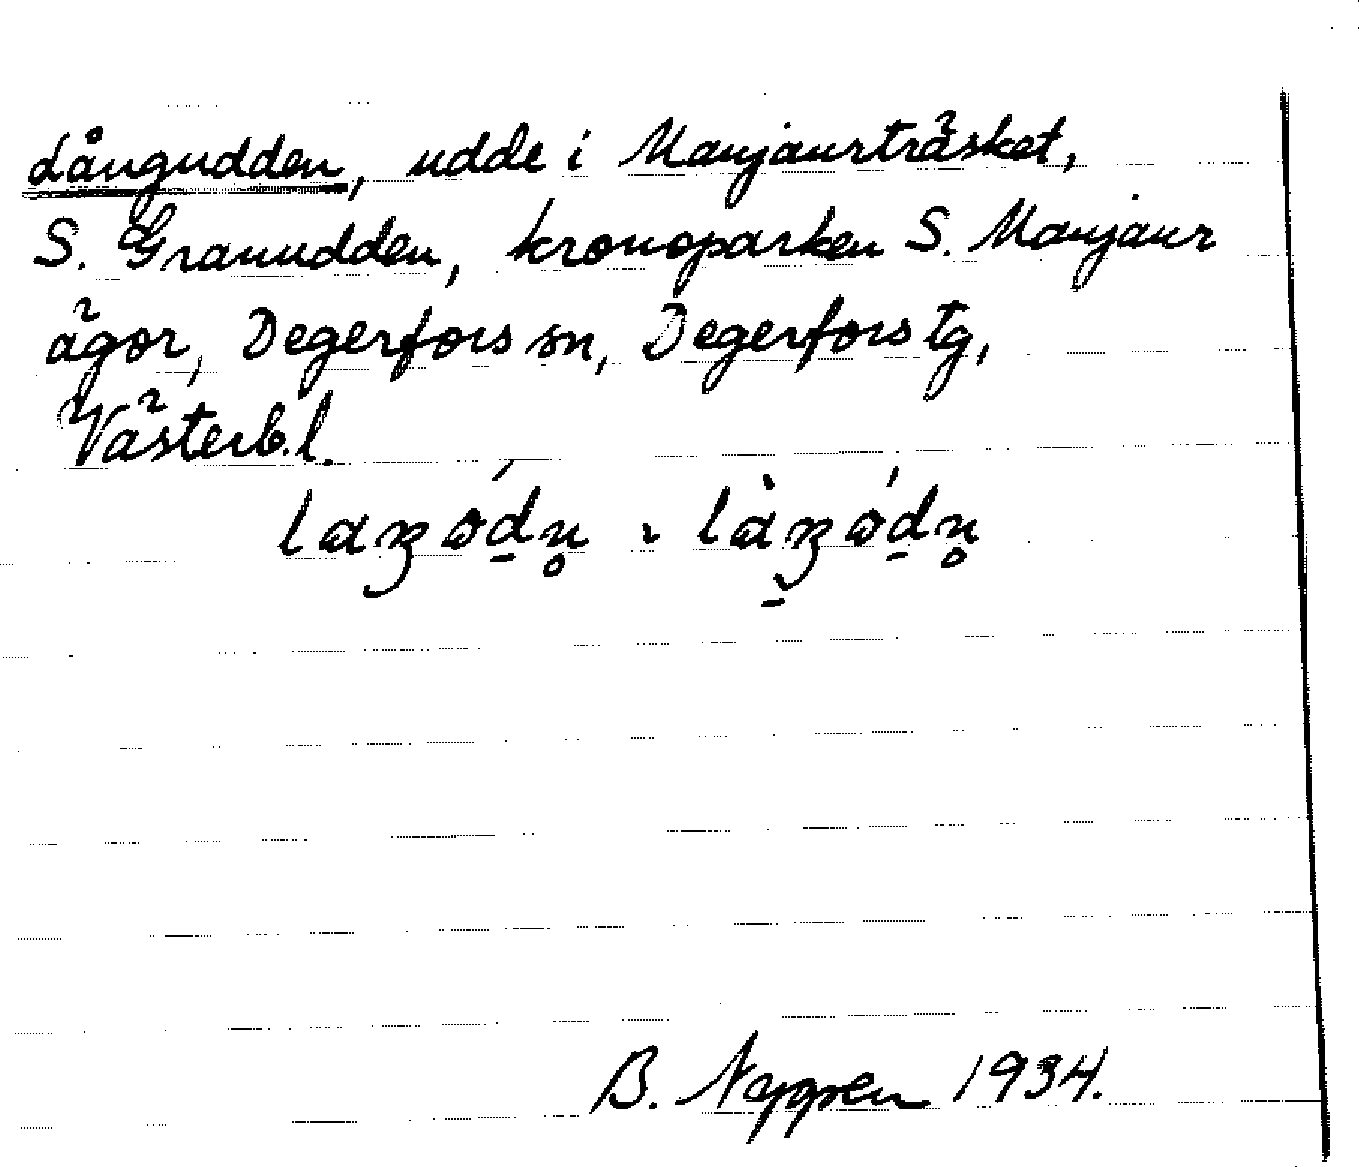 Långudden, udde i Manjaurträsket,
S. Granudden, kronoparken S. Manjaur
ägor, Degerfors sn, Degerfors tg,
Västerb.l.
B. Nygren 1934.